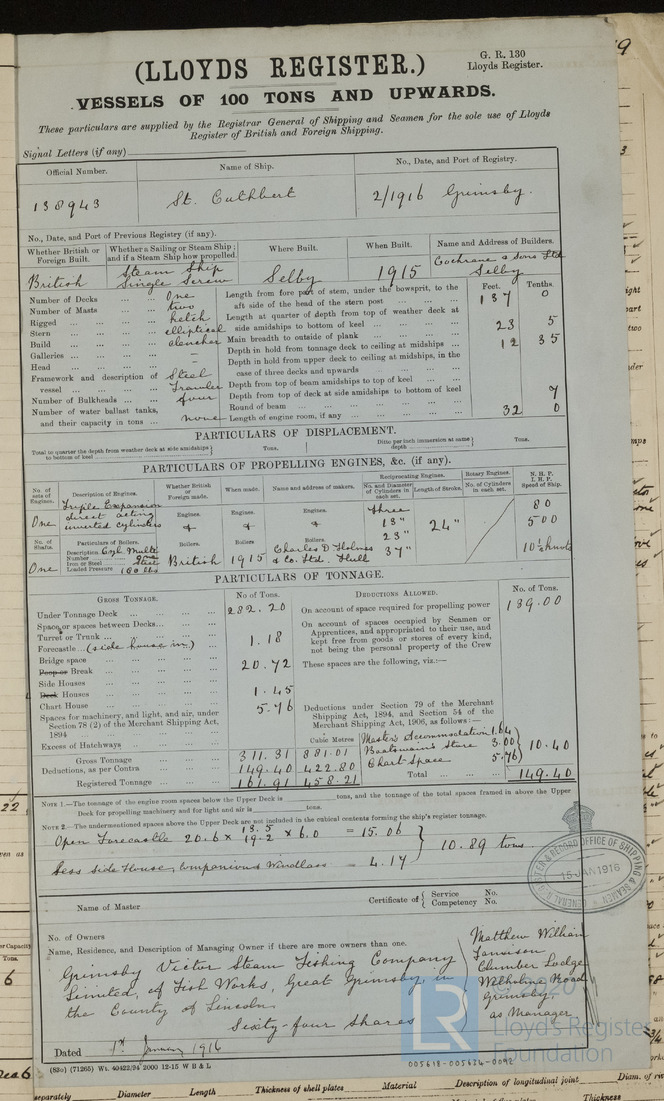 (LLOYDS REGISTER.)
G. R. 130
Lloyds Register.
VESSELS OF 100 TONS AND UPWARDS.
These particulars are supplied by the Registrar General of Shipping and Seamen for the sole use of Lloyds
Register of British and Foreign Shipping.
Signal Letters (if any)
Official Number. Name of Ship. No., Date, and Port of Registry.
138943 St. Cuthbert 2/1916 Grimsby.
No., Date, and Port of Previous Registry (if any).
Whether British or Foreign Built. Whether a Sailing or Steam Ship; and if a Steam Ship how propelled. Where Built. When Built. Name and Address of Builders.
British Steam Ship Single Screw Selby 1915 Cochrane & Sons Ltd Selby
Number of Decks One
Number of Masts two
Rigged ketch
Stern elliptical
Build clencher
Galleries –
Head –
Framework and description of vessel Steel Trawler
Number of Bulkheads four
Number of water ballast tanks, and their capacity in tons none
Feet. Tenths.
Length from fore part of stem, under the bowsprit, to the aft side of the head of the stern post 137 0
Length at quarter of depth from top of weather deck at side amidships to bottom of keel
Main breadth to outside of plank 23 5
Depth in hold from tonnage deck to ceiling at midships 12 35
Depth in hold from upper deck to ceiling at midships, in the case of three decks and upwards
Depth from top of beam amidships to top of keel
Depth from top of deck at side amidships to bottom of keel
Round of beam 7
Length of engine room, if any 32 0
PARTICULARS OF DISPLACEMENT.
Total to quarter the depth from weather deck at side amidships to bottom of keel Tons. Ditto per inch immersion at same depth Tons.
PARTICULARS OF PROPELLING ENGINES, &c. (if any).
No. of sets of Engines. Description of Engines. Whether British or Foreign made. When made. Name and address of makers. Reciprocating Engines. Rotary Engines. N. H. P. I. H. P. Speed of Ship.
No. and Diameter of Cylinders in each set. Length of Stroke. No. of Cylinders in each set.
One Triple Expansion direct acting inverted cylinders Engines. Engines. Engines. three 13" 23" 37" 24" 80 500 10½ knots
No. of Shafts. Particulars of Boilers. Boilers. Boilers Boilers
One Description Cyl Multr Number One Iron or Steel Steel Loaded Pressure 180 lbs British 1915 Charles D Holmes & Co. Ltd. Hull
PARTICULARS OF TONNAGE.
GROSS TONNAGE. No of Tons. DEDUCTIONS ALLOWED. No. of Tons.
Under Tonnage Deck 282.20
Space or spaces between Decks
Turret or Trunk
Forecastle (side house in) 1.18
Bridge space
Poop or Break 20.72
Side Houses
Deck Houses 1.45
Chart House 5.76
Spaces for machinery, and light, and air, under Section 78 (2) of the Merchant Shipping Act, 1894
Excess of Hatchways
Cubic Metres
Gross Tonnage 311.31 881.01
Deductions, as per Contra 149.40 422.80
Registered Tonnage 161.91 458.21
On account of space required for propelling power 139.00
On account of spaces occupied by Seamen or Apprentices, and appropriated to their use, and kept free from goods or stores of every kind, not being the personal property of the Crew
These spaces are the following, viz.:—
Deductions under Section 79 of the Merchant Shipping Act, 1894, and Section 54 of the Merchant Shipping Act, 1906, as follows:—
Master's Accommodation 1.64
Boatswain's Store 3.00
Chart Space 5.76
10.40
Total 149.40
NOTE 1.—The tonnage of the engine room spaces below the Upper Deck is tons, and the tonnage of the total spaces framed in above the Upper
Deck for propelling machinery and for light and air is tons.
NOTE 2.—The undermentioned spaces above the Upper Deck are not included in the cubical contents forming the ship's register tonnage.
Open Forecastle 20.6 x 13.5 19.2 x 6.0 = 15.06
Less Side House, Companion & Windlass = 4.17
10.89 tons
REGISTER & RECORD OFFICE OF SHIPPING & SEAMEN
15 JAN 1916
GENERAL
Name of Master Certificate of Service No. Competency No.
No. of Owners
Name, Residence, and Description of Managing Owner if there are more owners than one.
Grimsby Victor Steam Fishing Company
Limited, of Fish Works, Great Grimsby, in
the County of Lincoln
Sixty-four Shares
Matthew William
Clumber Lodge
Wilholme Road
Grimsby
as Manager
Dated 1st January 1916
(83o) (71265) Wt. 40422/94 2000 12-15 W B & L
005618-005624-0092
LR
Lloyd's Register
Foundation
separately Diameter Length Thickness of shell plates Material Description of longitudinal joint Diam. of riv
Thickness